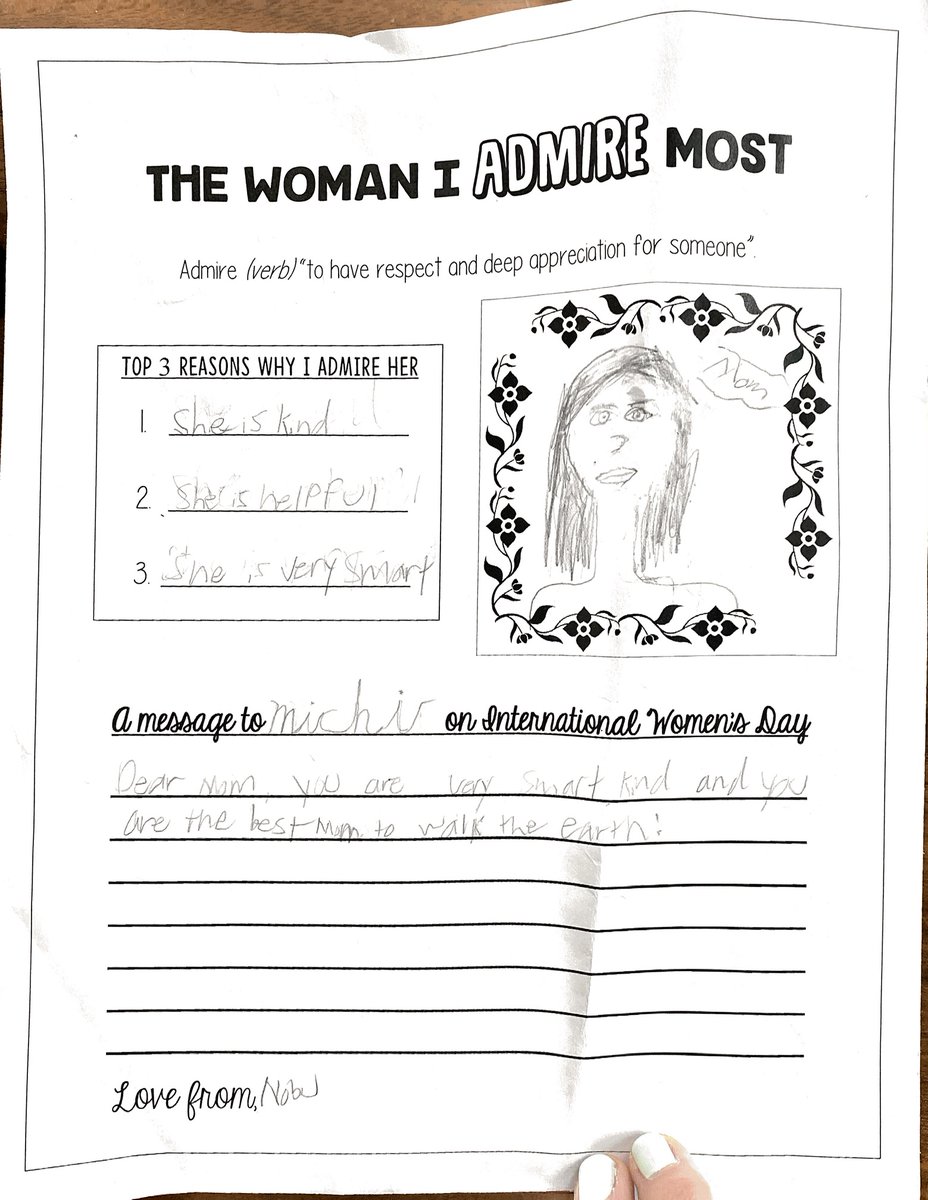 THE WOMAN I ADMIRE MOST
Admire (verb) "to have respect and deep appreciation for someone".
TOP 3 REASONS WHY I ADMIRE HER
1. She is kind
2. She is helpful
3. She is very smart
Mom
A message to michi on International Women's Day
Dear Mom, you are very smart, kind and you
are the best Mom to walk the earth!
Love from,